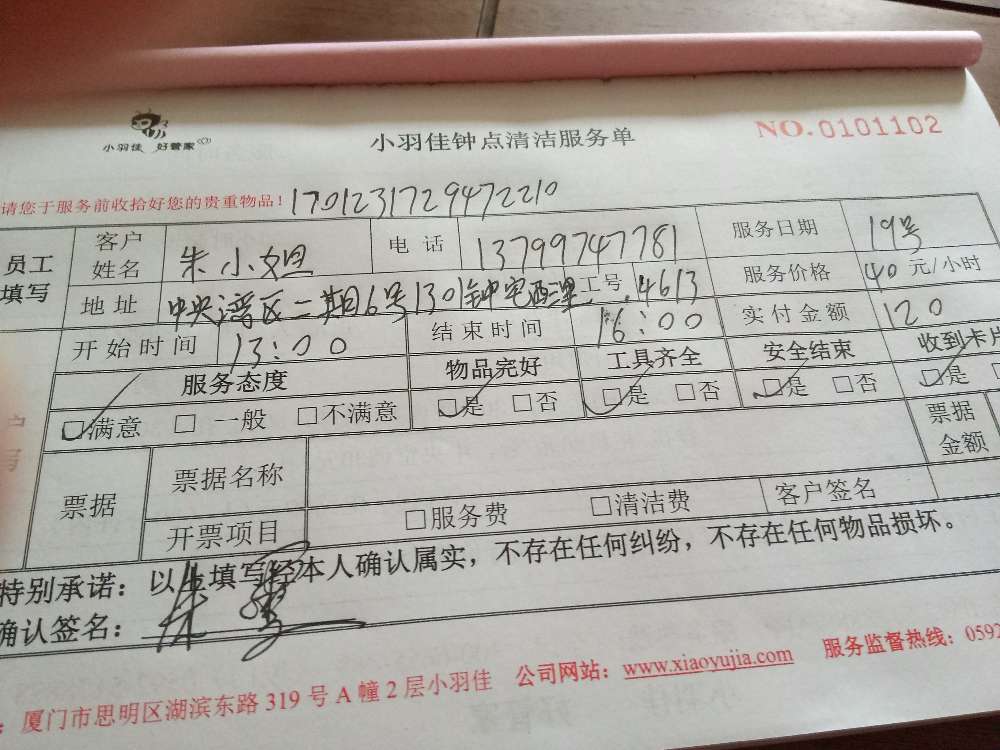 小羽佳 好管家
小羽佳钟点清洁服务单
NO.0101102
请您于服务前收拾好您的贵重物品！ 1701231729472210
员工填写 客户姓名 朱小姐 电话 13799747781 服务日期 19号
地址 中央湾区二期6号1301钟宅西里 工号 4613 服务价格 40 元/小时
开始时间 13:00 结束时间 16:00 实付金额 120
服务态度 物品完好 工具齐全 安全结束 收到卡片
☑满意 □一般 □不满意 ☑是 □否 ☑是 □否 ☑是 □否 ☑是
票据 票据名称 票据金额
开票项目 □服务费 □清洁费 客户签名
特别承诺：以上填写经本人确认属实，不存在任何纠纷，不存在任何物品损坏。
确认签名： 朱
：厦门市思明区湖滨东路319号A幢2层小羽佳 公司网站：www.xiaoyujia.com 服务监督热线：0592